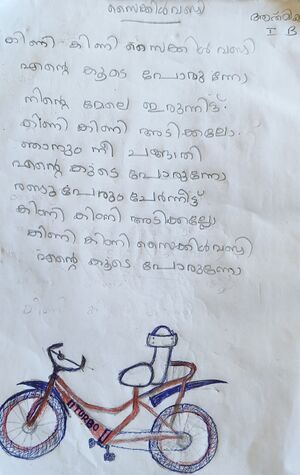 സൈക്കിൾ വണ്ടി
I B
കിണി കിണി സൈക്കിൾ വണ്ടി
എന്റെ കൂടെ പോരുന്നോ
നിന്റെ മേലെ ഇരുന്നിട്ട്
കിണി കിണി അടിക്കലോ
ഞാനും നീ ചങ്ങാതി
എന്റെ കൂടെ പോരുന്നോ
രണ്ടുപേരും ചേർന്നിട്ട്
കിണി കിണി അടിക്കല്ലോ
കിണി കിണി സൈക്കിൾ വണ്ടി
എന്റെ കൂടെ പോരുന്നോ
TURBO